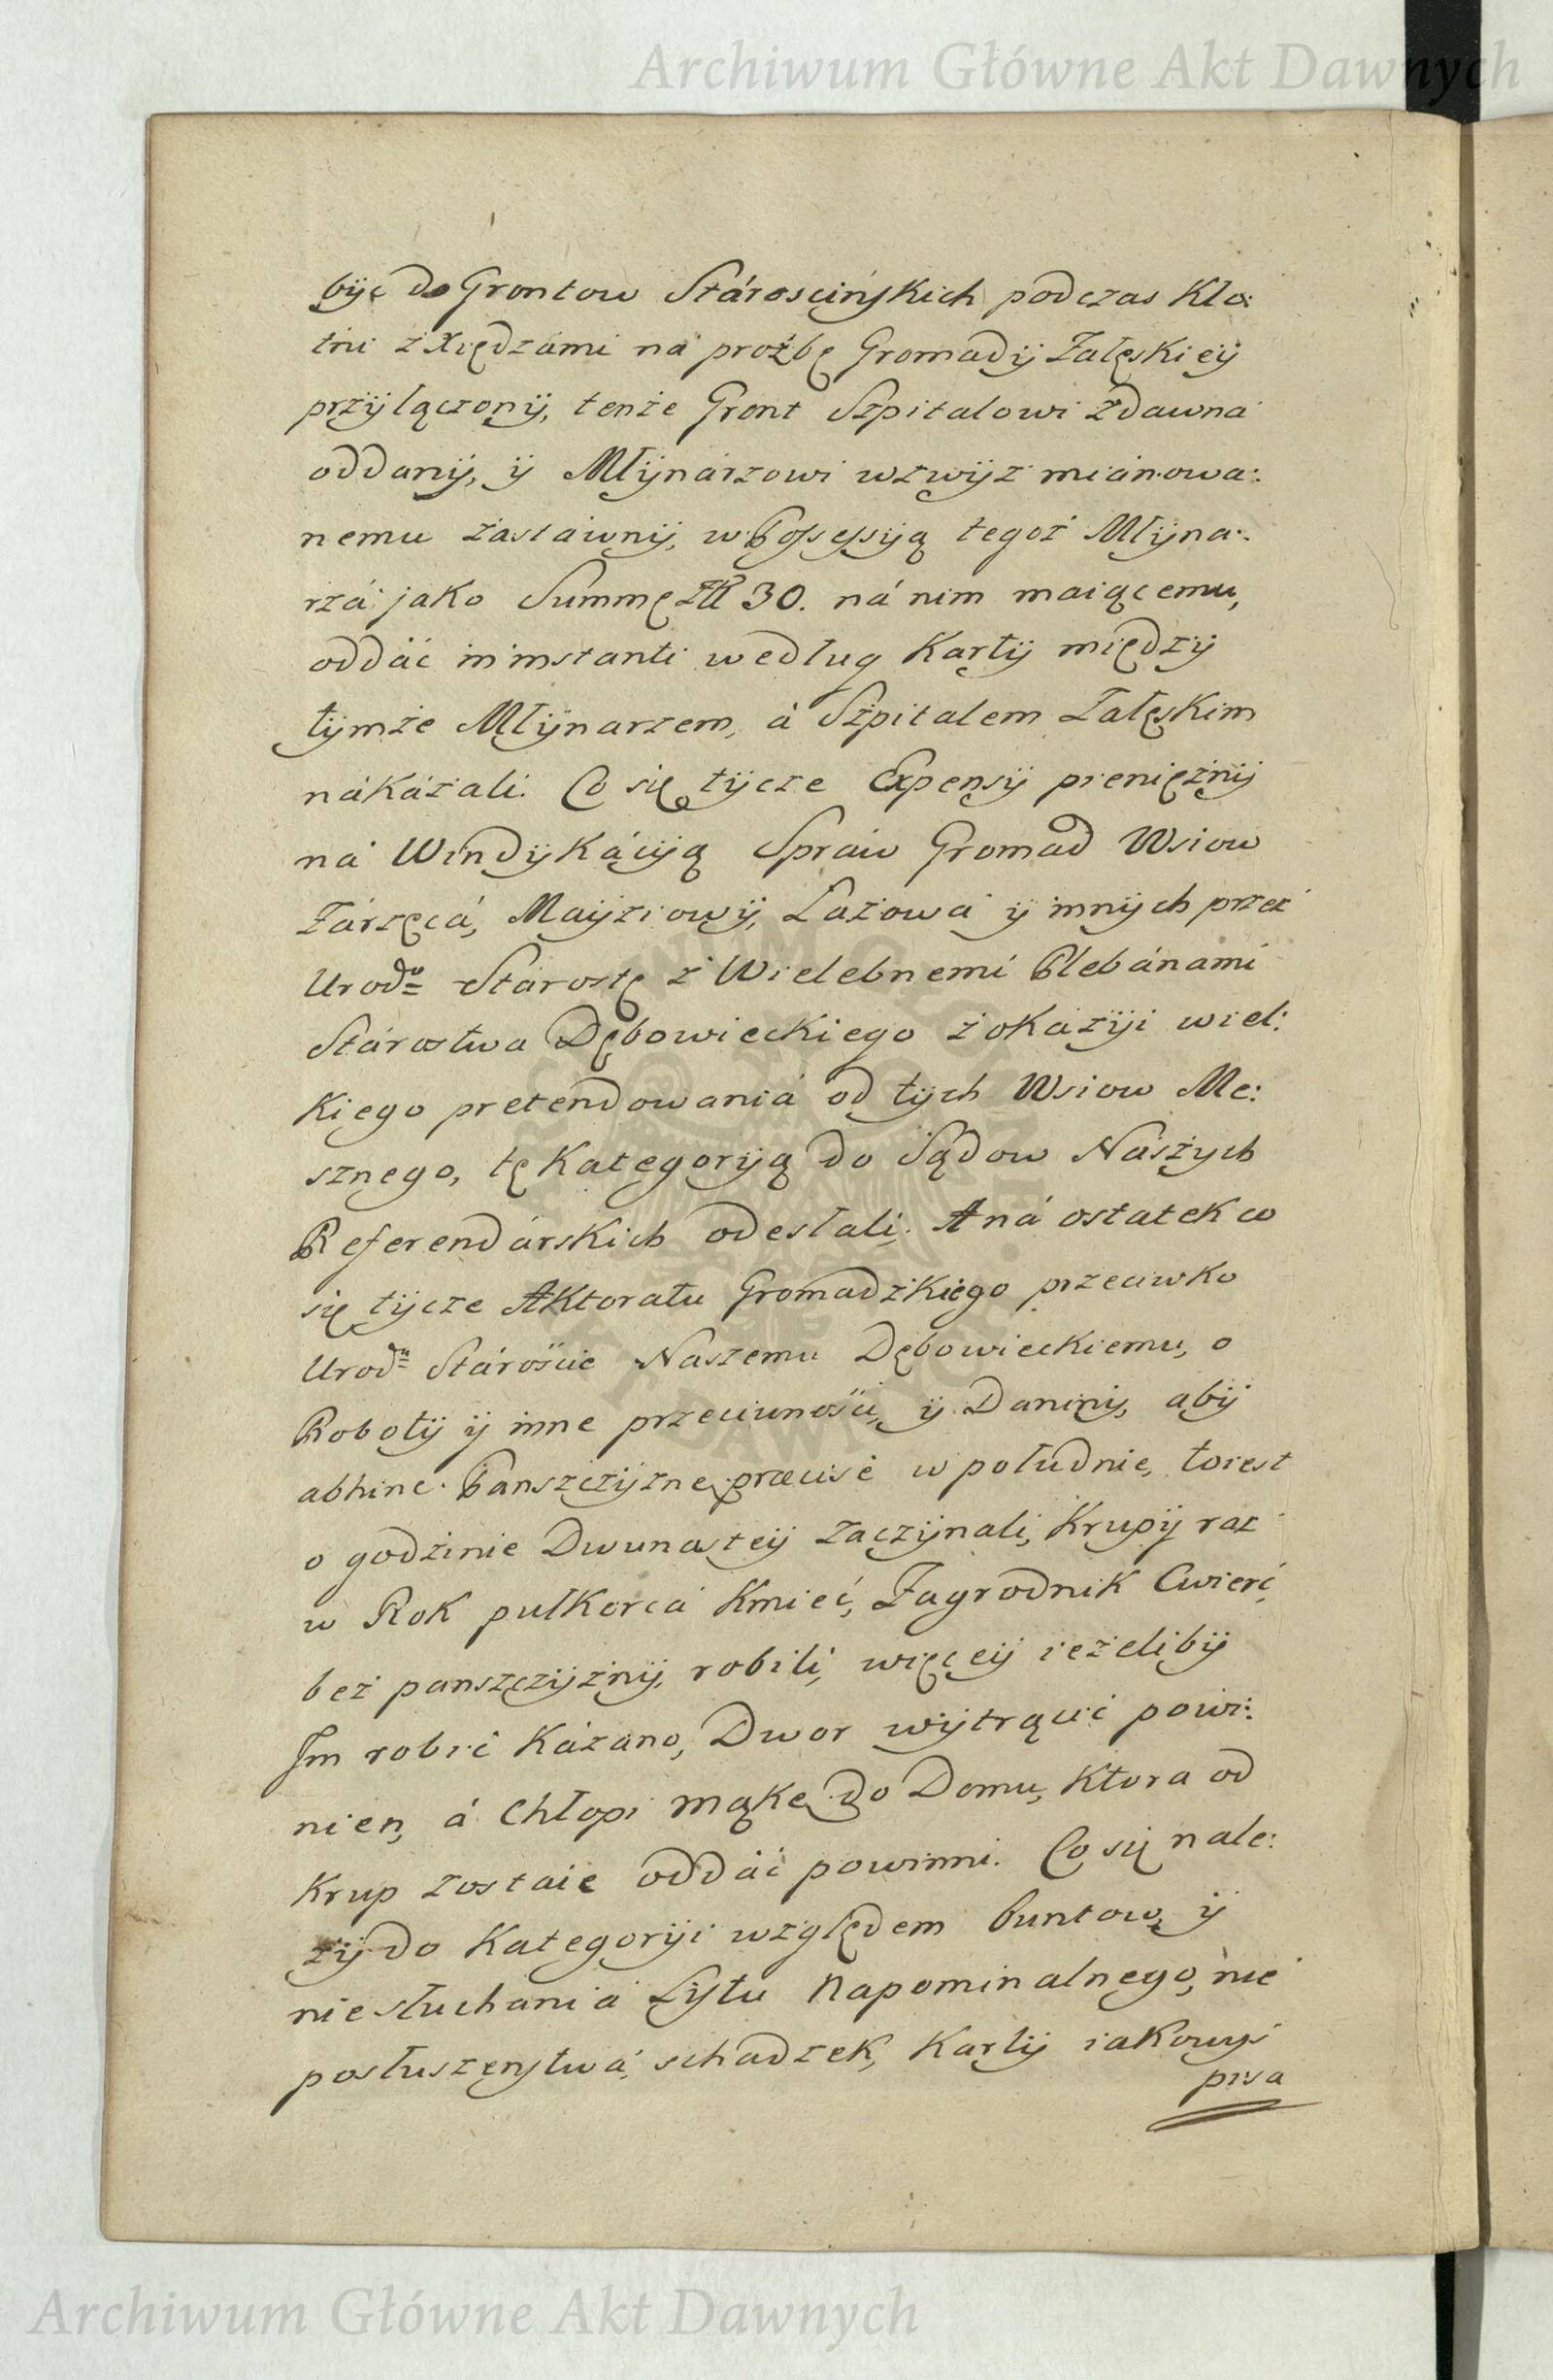 Archiwum Główne Akt Dawnych
byc do Grontow Stároscińskich podczas Kło:
tni z Xiędzámi ná proźbę Gromady Załęskiey
przyłączony, tenże Gront Szpitalowi zdawna
oddany, y Młynárzowi wzwyż miánowa:
nemu zastáwny, w Possessyią tegoż Młyna:
rzá jako Summę Zł 30. ná nim maiącemu,
oddáć in instanti według Karty między
tymże Młynarzem, á Szpitalem Załęskim
nákázali. Co się tycze Expensy pienięźny
ná Windykácyią Spráw Gromad Wsiow
Zárzęcá, Mayzcowy, Łazowá y innych przez
Urodº Stárostę z Wielebnemi Plebánami
Stárostwa Dębowieckiego z okázyi wiel:
kiego pretendowaniá od tych Wsiow Me:
sznego, tę Kategoryią do Sądow Nászych
Referendárskich odesłali. A ná ostatek co
się tycze Aktoratu Gromadzkiego przeciwko
Urodº Stárościе Naszemu Dębowieckiemu, o
Roboty y inne przeciwności, y Daniny, aby
abhinc Panszczyznę præcise w południe, to iest
o godzinie Dwunastey zaczynali, Krupy raz
w Rok pułkorcá Kmieć, Zagrodnik Cwierć,
bez panszczyzny, robili, więcey ieżeliby
Im robić kázano, Dwor wytrącić powi:
nien, á Chłopi mąkę do Domu, ktora od
krup zostaie oddáć powinni. Co się nale:
ży do Kategoryi względem buntow, y
niesłuchaniá Lystu Napominalnego, nie
posłuszeństwá, schadzek, Karty iakowyś
pisa
Archiwum Główne Akt Dawnych